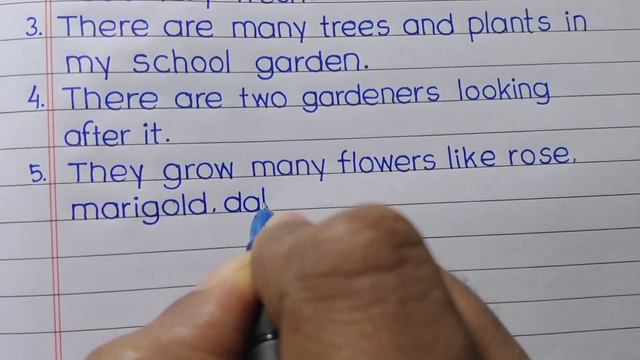 3. There are many trees and plants in
my school garden.
4. There are two gardeners looking
after it.
5. They grow many flowers like rose,
marigold, dal